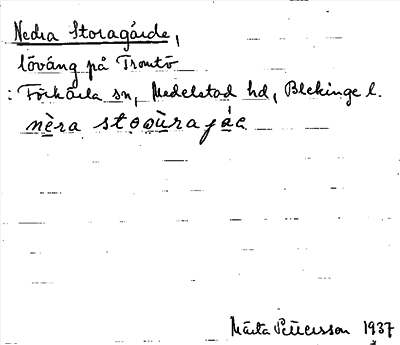 Nedra Storagärde,
lövång på Tromtö
: Förkärla sn, Medelstad hd, Blekinge l.
nèra
Märta Petersson 1937